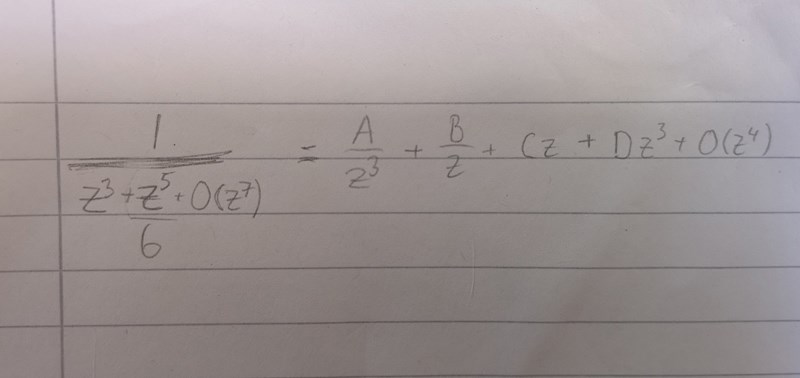 1 / (z³ + z⁵/6 + O(z⁷)) = A/z³ + B/z + Cz + Dz³ + O(z⁴)